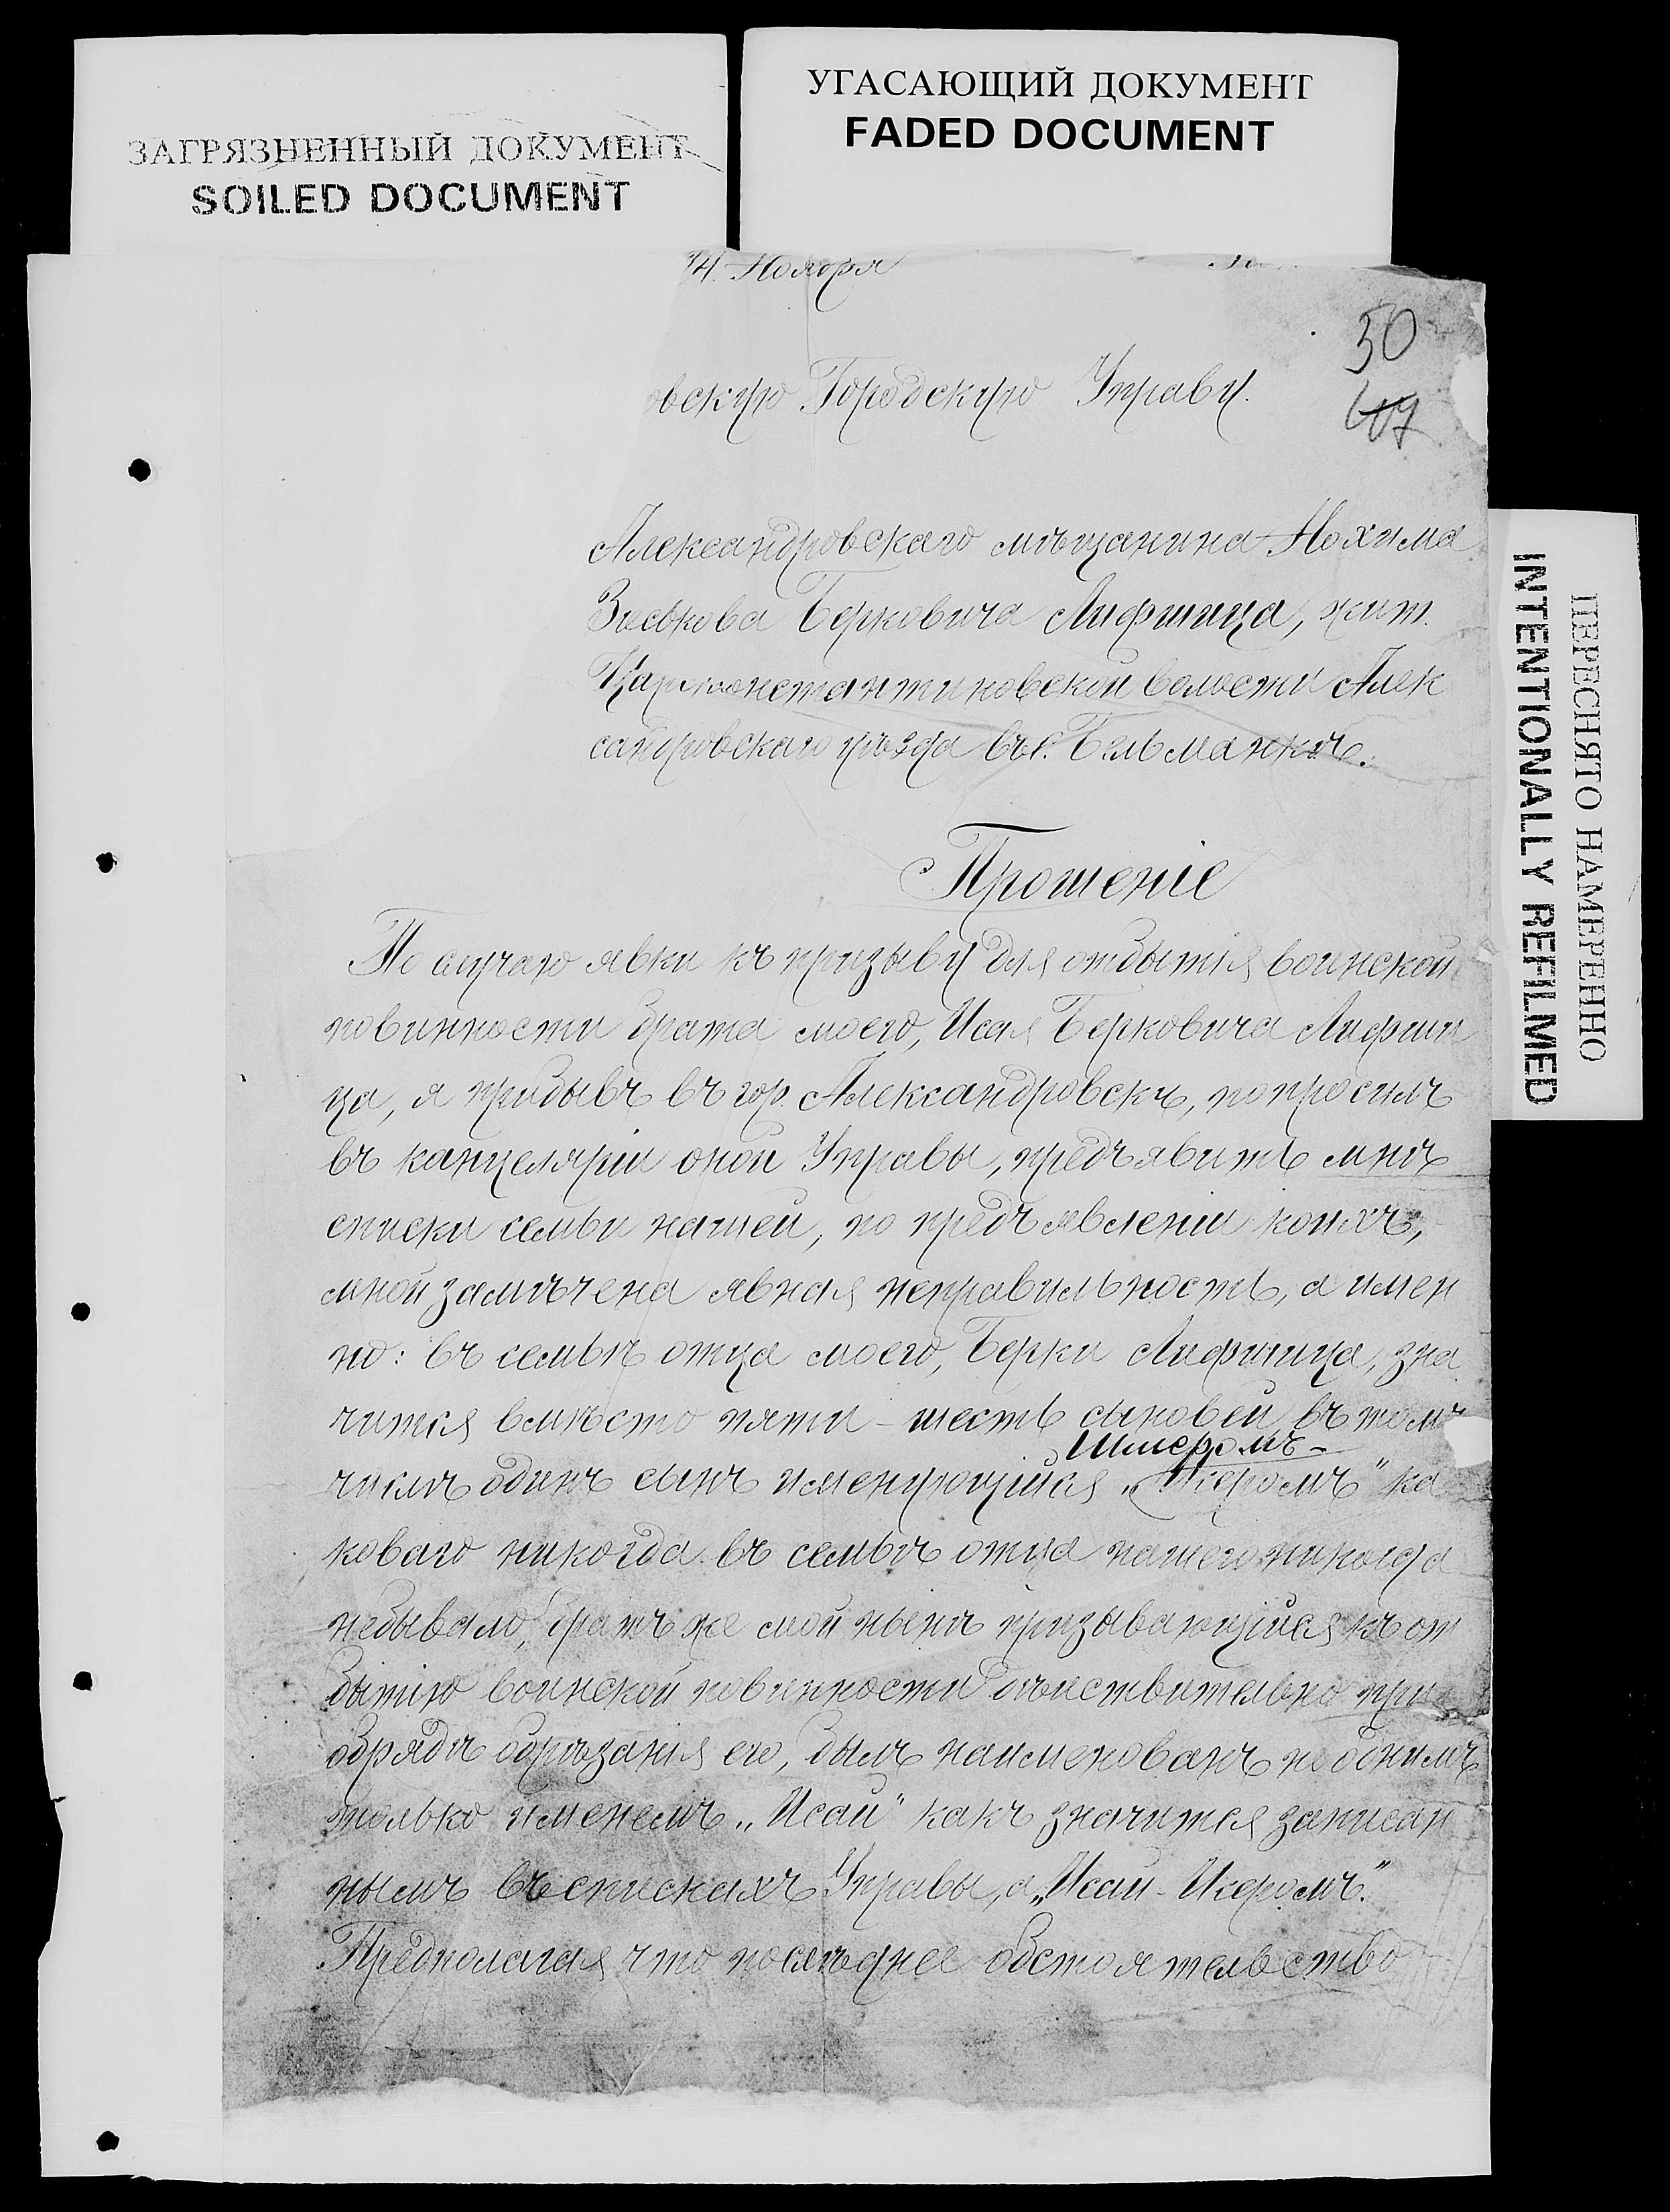 УГАСАЮЩИЙ ДОКУМЕНТ
FADED DOCUMENT
ЗАГРЯЗНЕННЫЙ ДОКУМЕНТ
SOILED DOCUMENT
Ноября
50
овскую Городскую Управу.
Александровскаго мѣщанина Нохима
Зиськова Берковича Лифшица, жит.
Цареконстантиновской волости Алек
сандровскаго уѣзда въ с. Бельманкѣ.
ПЕРЕСНЯТО НАМЕРЕННО
INTENTIONALLY REFILMED
Прошеніе
По случаю явки къ призыву для отбытія воинской
повинности брата моего, Исая Берковича Лифши
ца, я прибывъ въ гор. Александровскъ, попросилъ
въ канцеляріи оной Управы, предъявить мнѣ
списки семьи нашей, по предъявленіи коихъ,
мной замѣчена явная неправильность, а имен
но: въ семьѣ отца моего, Берки Лифшица, зна
чится вмѣсто пяти - шесть сыновей въ томъ
Шмеромъ
числѣ одинъ сынъ именующійся „Икеромъ" ка
коваго никогда въ семьѣ отца нашего никогда
небывало, братъ же мой нынѣ призывающійся къ от
бытію воинской повинности дѣйствительно при
обрядѣ обрѣзанія его, былъ наименованъ не однимъ
только именемъ „Исай" какъ значится записан
нымъ въ спискахъ Управы, а „Исай-Икеромъ."
Предполагая что послѣднее обстоятельство